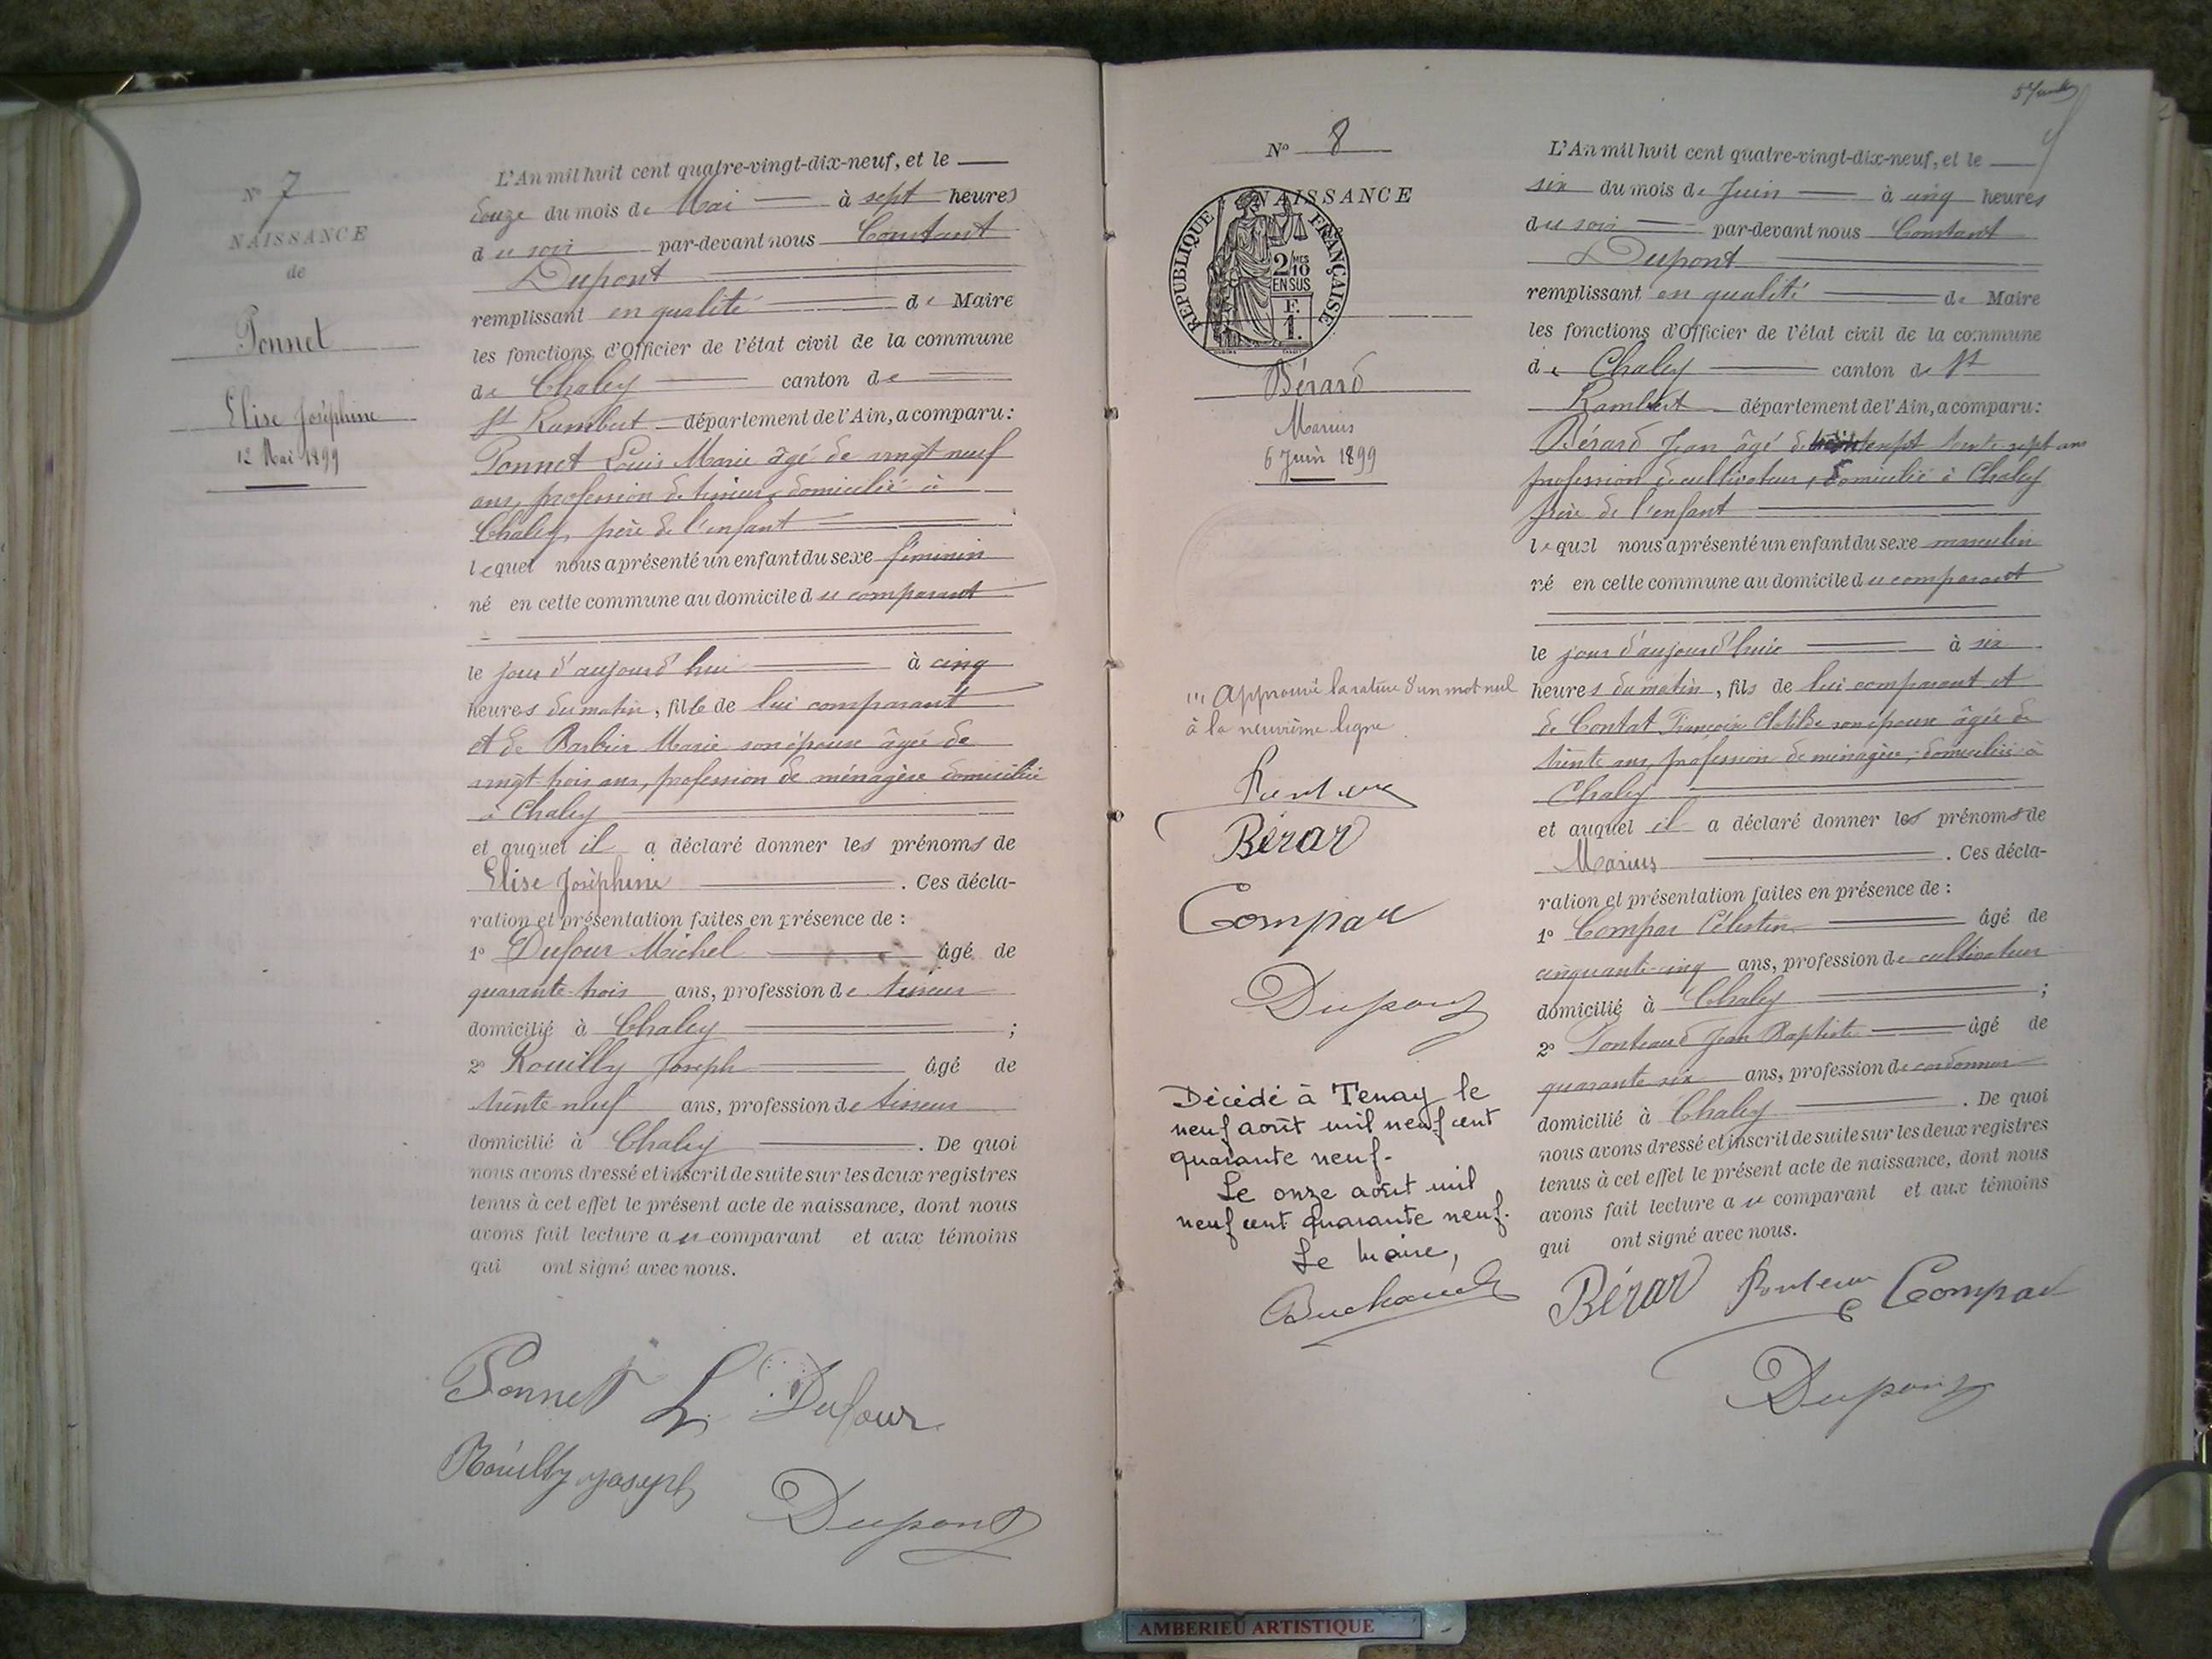 Nº 7
NAISSANCE
de
Ponnet
Elise Joséphine
12 Mai 1899
L'An mil huit cent quatre-vingt-dix-neuf, et le
douze du mois de Mai à sept heures
du soir par-devant nous Constant
Dupont
remplissant en qualité de Maire
les fonctions d'Officier de l'état civil de la commune
de Chaley canton de
St Rambert département de l'Ain, a comparu :
Ponnet Louis Marie âgé de vingt neuf
ans, profession de tisseur, domicilié à
Chaley, père de l'enfant
lequel nous a présenté un enfant du sexe féminin
né en cette commune au domicile du comparant
le jour d'aujourd'hui à cinq
heures du matin, fille de lui comparant
et de Barbier Marie son épouse âgée de
vingt-trois ans, profession de ménagère domiciliée
à Chaley
et auquel il a déclaré donner les prénoms de
Elise Joséphine . Ces décla-
ration et présentation faites en présence de :
1º Dufour Michel âgé de
quarante-trois ans, profession de tisseur
domicilié à Chaley ;
2º Rouilly Joseph âgé de
trente neuf ans, profession de tisseur
domicilié à Chaley . De quoi
nous avons dressé et inscrit de suite sur les deux registres
tenus à cet effet le présent acte de naissance, dont nous
avons fait lecture au comparant et aux témoins
qui ont signé avec nous.
Ponnet L. Dufour
Rouilly joseph
Dupont
Nº 8
NAISSANCE
REPUBLIQUE FRANÇAISE
2/10 MES
EN SUS
F.
1.
Bérard
Marius
6 Juin 1899
(1) Approuvé la rature d'un mot nul
à la neuvième ligne
Bérar
Compar
Dupont
Décédé à Tenay le
neuf août mil neuf cent
quarante neuf.
Le onze août mil
neuf cent quarante neuf.
Le Maire,
L'An mil huit cent quatre-vingt-dix-neuf, et le
six du mois de Juin à cinq heures
du soir par-devant nous Constant
Dupont
remplissant en qualité de Maire
les fonctions d'Officier de l'état civil de la commune
de Chaley canton de St
Rambert département de l'Ain, a comparu :
Bérard Jean âgé de trente sept ans
profession de cultivateur, domicilié à Chaley
père de l'enfant
lequel nous a présenté un enfant du sexe masculin
né en cette commune au domicile du comparant
le jour d'aujourd'hui à six
heures du matin, fils de lui comparant et
de Contat Françoise Clotilde son épouse âgée de
trente ans, profession de ménagère, domiciliée à
Chaley
et auquel il a déclaré donner les prénoms de
Marius . Ces décla-
ration et présentation faites en présence de :
1º Compar Célestin âgé de
cinquante-cinq ans, profession de cultivateur
domicilié à Chaley ;
2º Jean Baptiste âgé de
quarante six ans, profession de cordonnier
domicilié à Chaley . De quoi
nous avons dressé et inscrit de suite sur les deux registres
tenus à cet effet le présent acte de naissance, dont nous
avons fait lecture au comparant et aux témoins
qui ont signé avec nous.
Bérar Compar
Dupont
AMBERIEU ARTISTIQUE